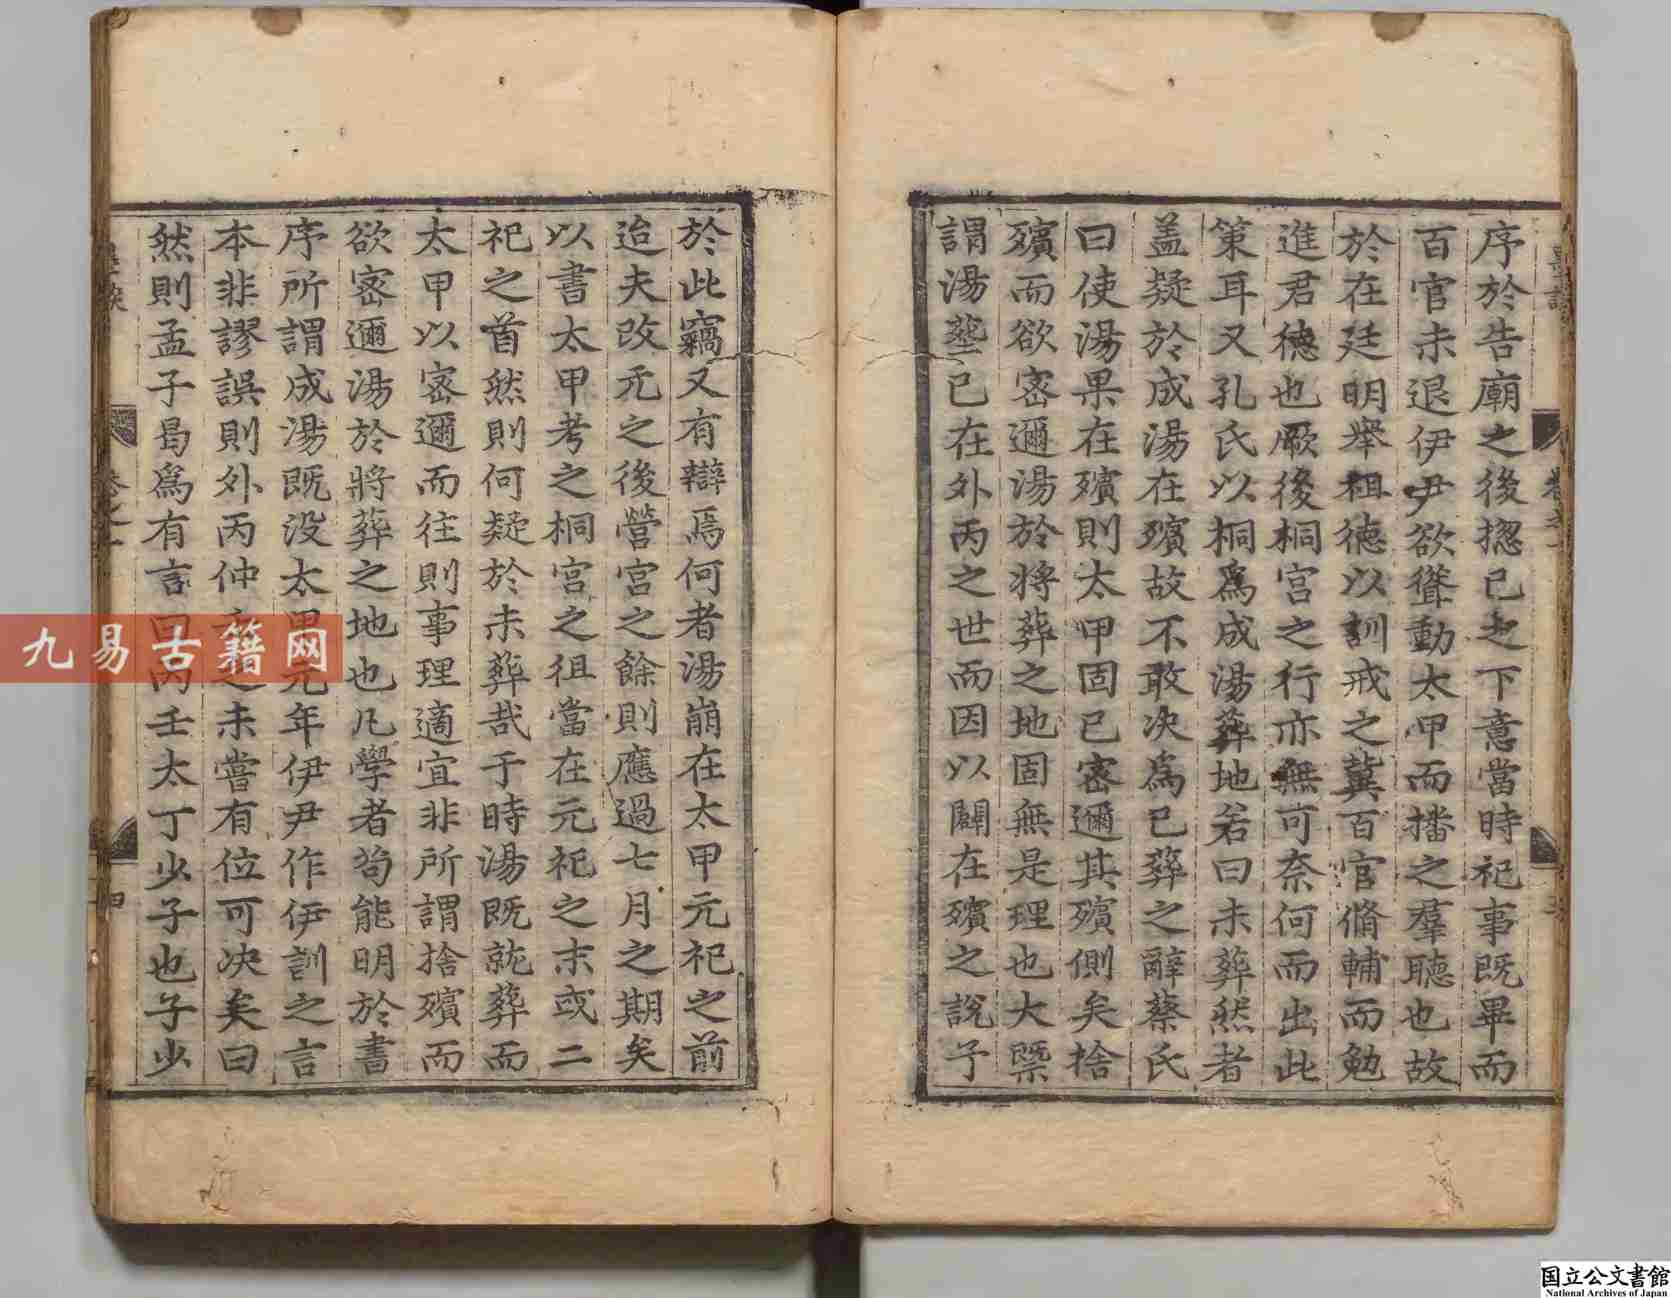 序於告廟之後揔已之下意當時祀事既畢而
百官未退伊尹欲聳動太甲而播之羣聽也故
於在廷明舉祖德以訓戒之冀百官脩輔而勉
進君德也厥後桐宮之行亦無可奈何而出此
策耳又孔氏以桐爲成湯葬地若曰未葬然者
盖疑於成湯在殯故不敢决爲已葬之辭蔡氏
曰使湯果在殯則太甲固已密邇其殯側矣捨
殯而欲密邇湯於將葬之地固無是理也大槩
謂湯塟已在外丙之世而因以闢在殯之說予
於此竊又有辯焉何者湯崩在太甲元祀之前
迨夫改元之後營宮之餘則應過七月之期矣
以書太甲考之桐宮之徂當在元祀之末或二
祀之首然則何疑於未葬哉于時湯既就葬而
太甲以密邇而往則事理適宜非所謂捨殯而
欲密邇湯於將葬之地也凡學者苟能明於書
序所謂成湯既没太甲元年伊尹作伊訓之言
本非謬誤則外丙仲之未嘗有位可决矣曰
然則孟子曷爲有言曰丙壬太丁少子也子少
卷之一
四
九易古籍网
国立公文書館
National Archives of Japan